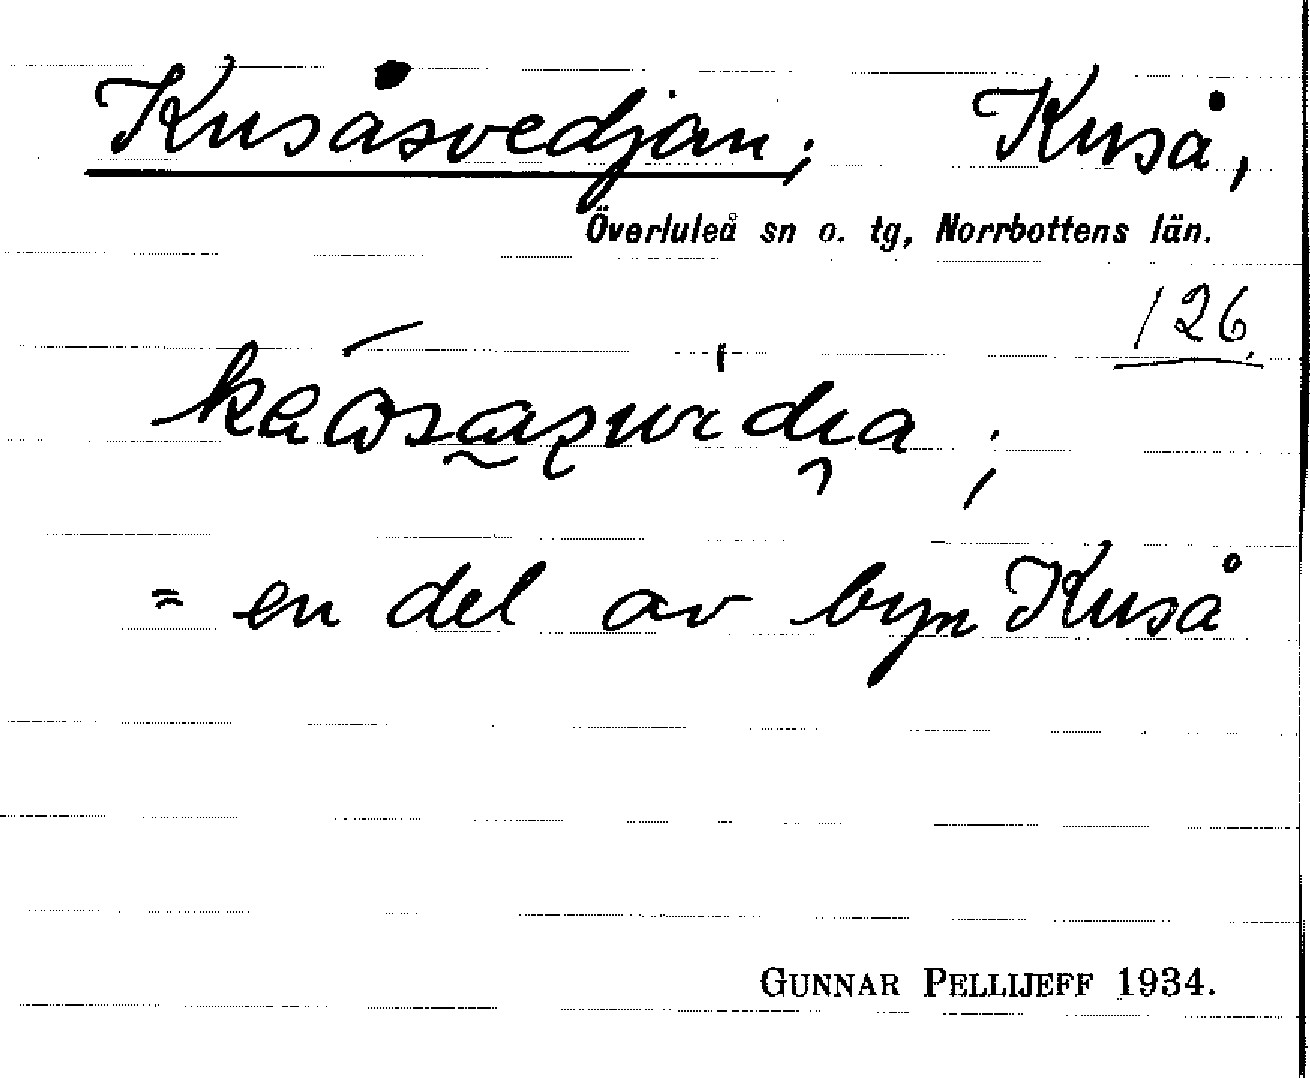 Kusåsvedjan; Kuså,
Överluleå sn o. tg, Norrbottens län.
126
= en del av byn Kuså
GUNNAR PELLIJEFF 1934.